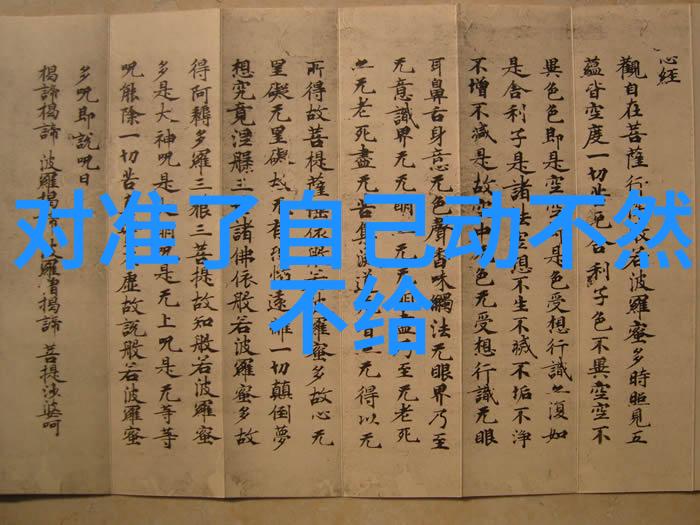 心経
觀自在菩薩行般若波羅蜜多時照見五
蘊皆空度一切舍利子色不異空空不
異色色即是空空是色受想行識亦復如
是舍利子是諸法空想不生不滅不垢不淨
不增不減是故空中色无受想行識无眼
耳鼻舌身意无色聲香味觸法无眼界乃至
无意識界无无明亦无无明盡乃至无老死
亦无老死盡无苦集滅道无智亦无得以无
所得故菩提薩埵依般若波羅蜜多故心无
罣礙无罣礙故无有恐怖遠離一切顛倒夢
想究竟涅槃三世諸佛依般若波羅蜜多故
得阿耨多羅三藐三菩提故知般若波羅蜜
多是大神呪是大明呪是无上呪是无等等
呪能除一切苦不虛故說般若波羅蜜
多呪即說呪曰
揭諦揭諦 波羅揭諦 波羅僧揭諦 菩提沙婆呵
对准了自己动不然
不给